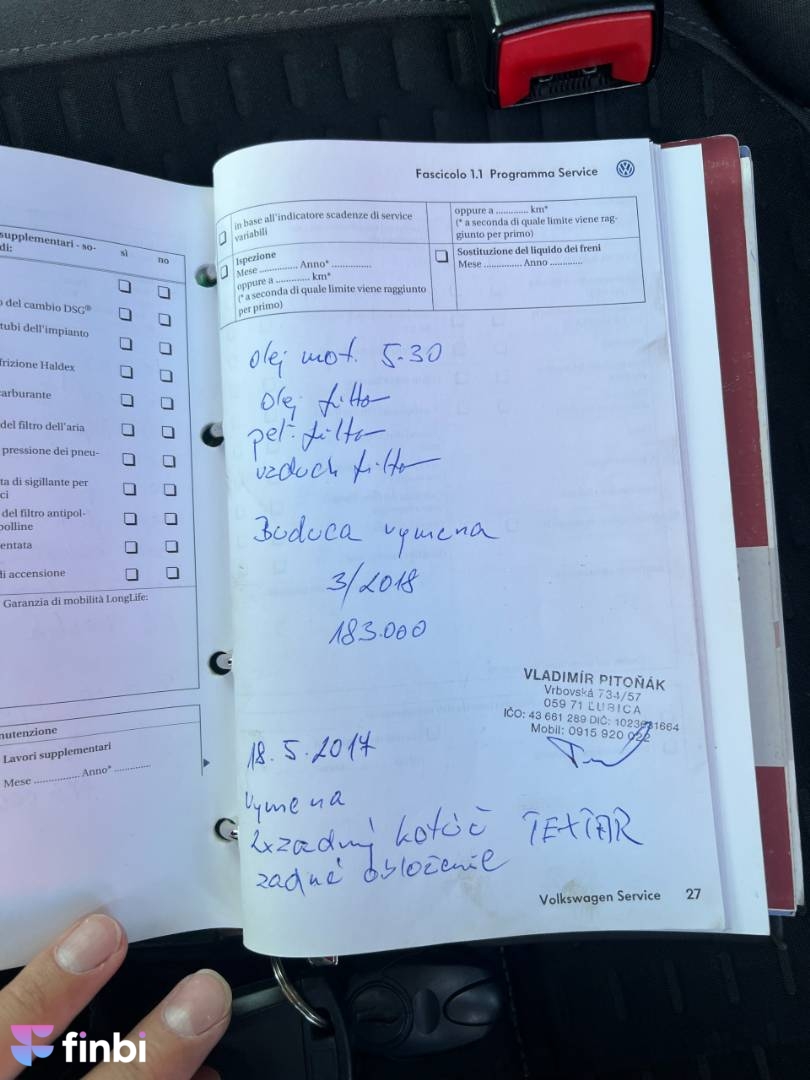 supplementari - so-
di:
sì
no
o del cambio DSG®
tubi dell'impianto
frizione Haldex
carburante
del filtro dell'aria
pressione dei pneu-
ta di sigillante per
ci
del filtro antipol-
polline
entata
di accensione
Garanzia di mobilità LongLife:
nutenzione
Lavori supplementari
Mese .............. Anno* ..............
Fascicolo 1.1 Programma Service
in base all'indicatore scadenze di service
variabili
oppure a ............. km*
(* a seconda di quale limite viene rag-
giunto per primo)
Ispezione
Mese .............. Anno* ..............
oppure a ............. km*
(* a seconda di quale limite viene raggiunto
per primo)
Sostituzione del liquido dei freni
Mese .............. Anno ............
olej mot. 5-30
olej filter
pel. filter
vzduch filter
Buduca vymena
3/2018
183.000
VLADIMÍR PITOŇÁK
Vrbovská 734/57
059 71 ĽUBICA
IČO: 43 661 289 DIČ: 1023631664
Mobil: 0915 920 022
18.5.2017
vymena
2xzadný kotúč TEXTAR
zadné obloženie
Volkswagen Service 27
finbi